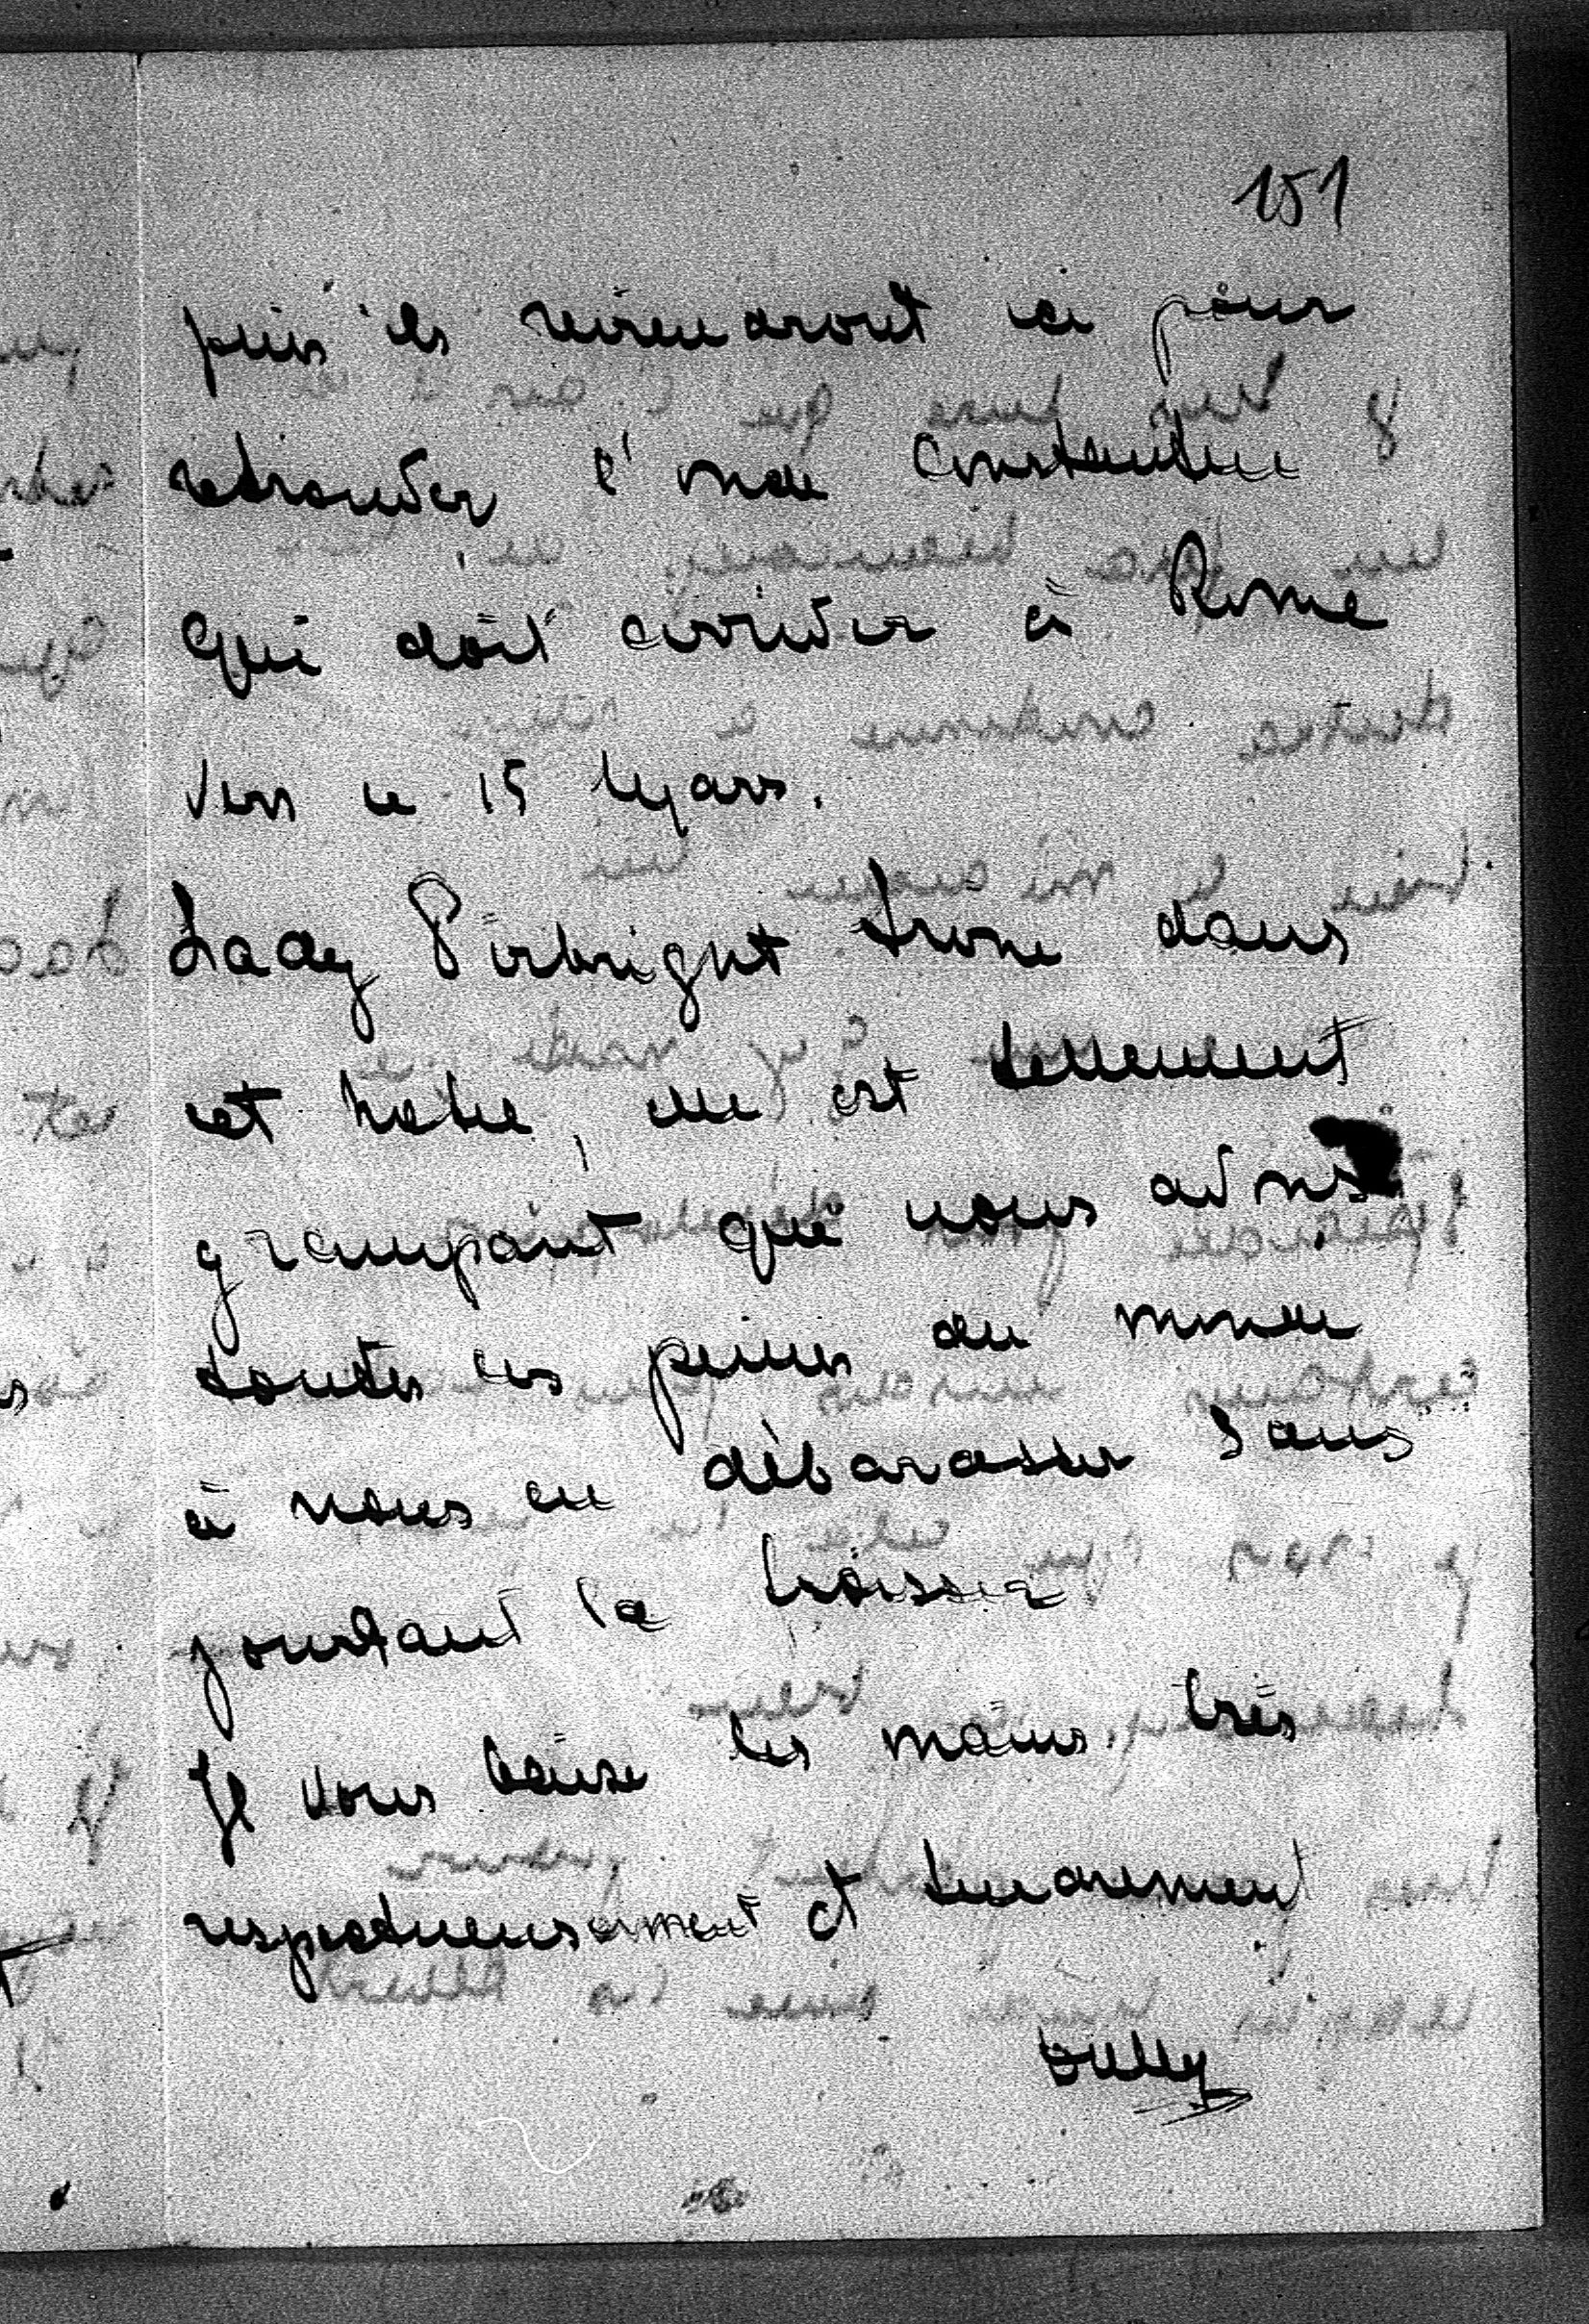 151
puis ils reviendront ici pour
retrouver l'
Constantin
qui doit arriver à Rome
vers le 15 Mars.
Lady Pirbright trone dans
cet hotel, elle est tellement
grampant que nous avons
toutes les peines du monde
à nous en débarasser sans
pourtant la froisser
Je vous baise les mains très
respectueusement et tendrement